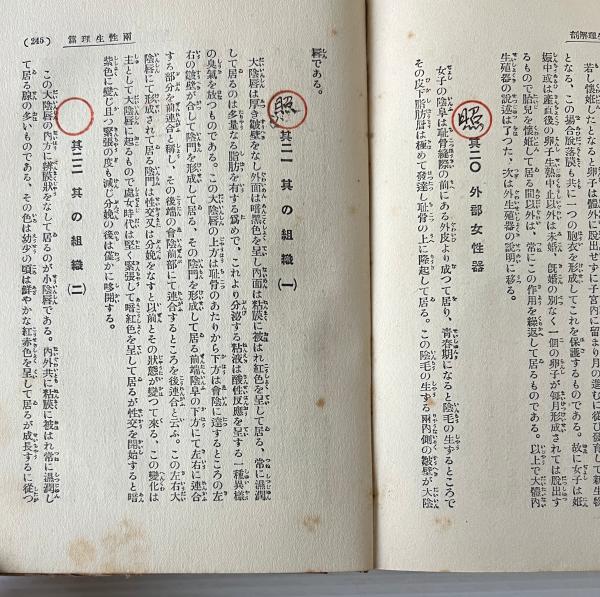 若し懷妊したとすれば卵子は體外に脱出せずに子宮內に留まり月の進むに從ひ發育して新生物
となる、この場合脱落膜も共に一つの胞衣を形成してこれを保護するものである。故に女子は姙
娠中或は產直後の卵子生熟中止以外は未婚、旣婚の別なく一個の卵子が每月形成されては脱出す
るもので胎兒を懷姙して居る間以外は、常にこの作用を繰返して居るものである。以上で大體內
生殖器の說述は了つた、次は外生殖器の說明に移る。
照 其二〇 外部女性器
女子の陰阜は恥骨縫際の前にある外皮より成つて居り、靑春期になると陰毛の生するところで
その皮下脂肪層は極めて發達し恥骨の上に隆起して居る。この陰毛の生する兩內側の皺壁が大陰
脣である。
照 其二一 其の組織(一)
大陰脣は厚き皺壁をなし外面は暗黑色を呈し內面は粘膜に被はれ紅色を呈して居る、常に濕潤
して居るのは多量なる脂肪を有する爲めで、これより分泌する粘液は酸性反應を呈する一種異樣
の臭氣を放つものである。この大陰脣の上方は恥骨のあたりから下方は會陰に達するところの左
右の皺壁が合して陰門を形成して居る、その陰門を形成して居る前端陰阜の下方にて左右に連合
する部分を前連合と稱し、その後端の會陰前部にて連合するところを後連合と云ふ。この左右大
陰脣にて形成されて居る陰門は性交又は分娩をなすと以前とその狀態が變つて來る、この變化は
主として大陰脣に起るもので處女時代は軽く緊張して暗紅色を呈して居るが性交を開始すると暗
紫色に變じ且つ緊張の度も減じ分娩の後は僅かに哆開する。
其二二 其の組織(二)
この大陰脣の內方に薄膜狀をなして居るのが小陰脣である。內外共に粘膜に被はれ常に濕潤し
て居る腺の多いものである、その色は幼少の頃は鮮やかな紅赤色を呈して居るが成長するに從つ
兩性生理篇
(245)